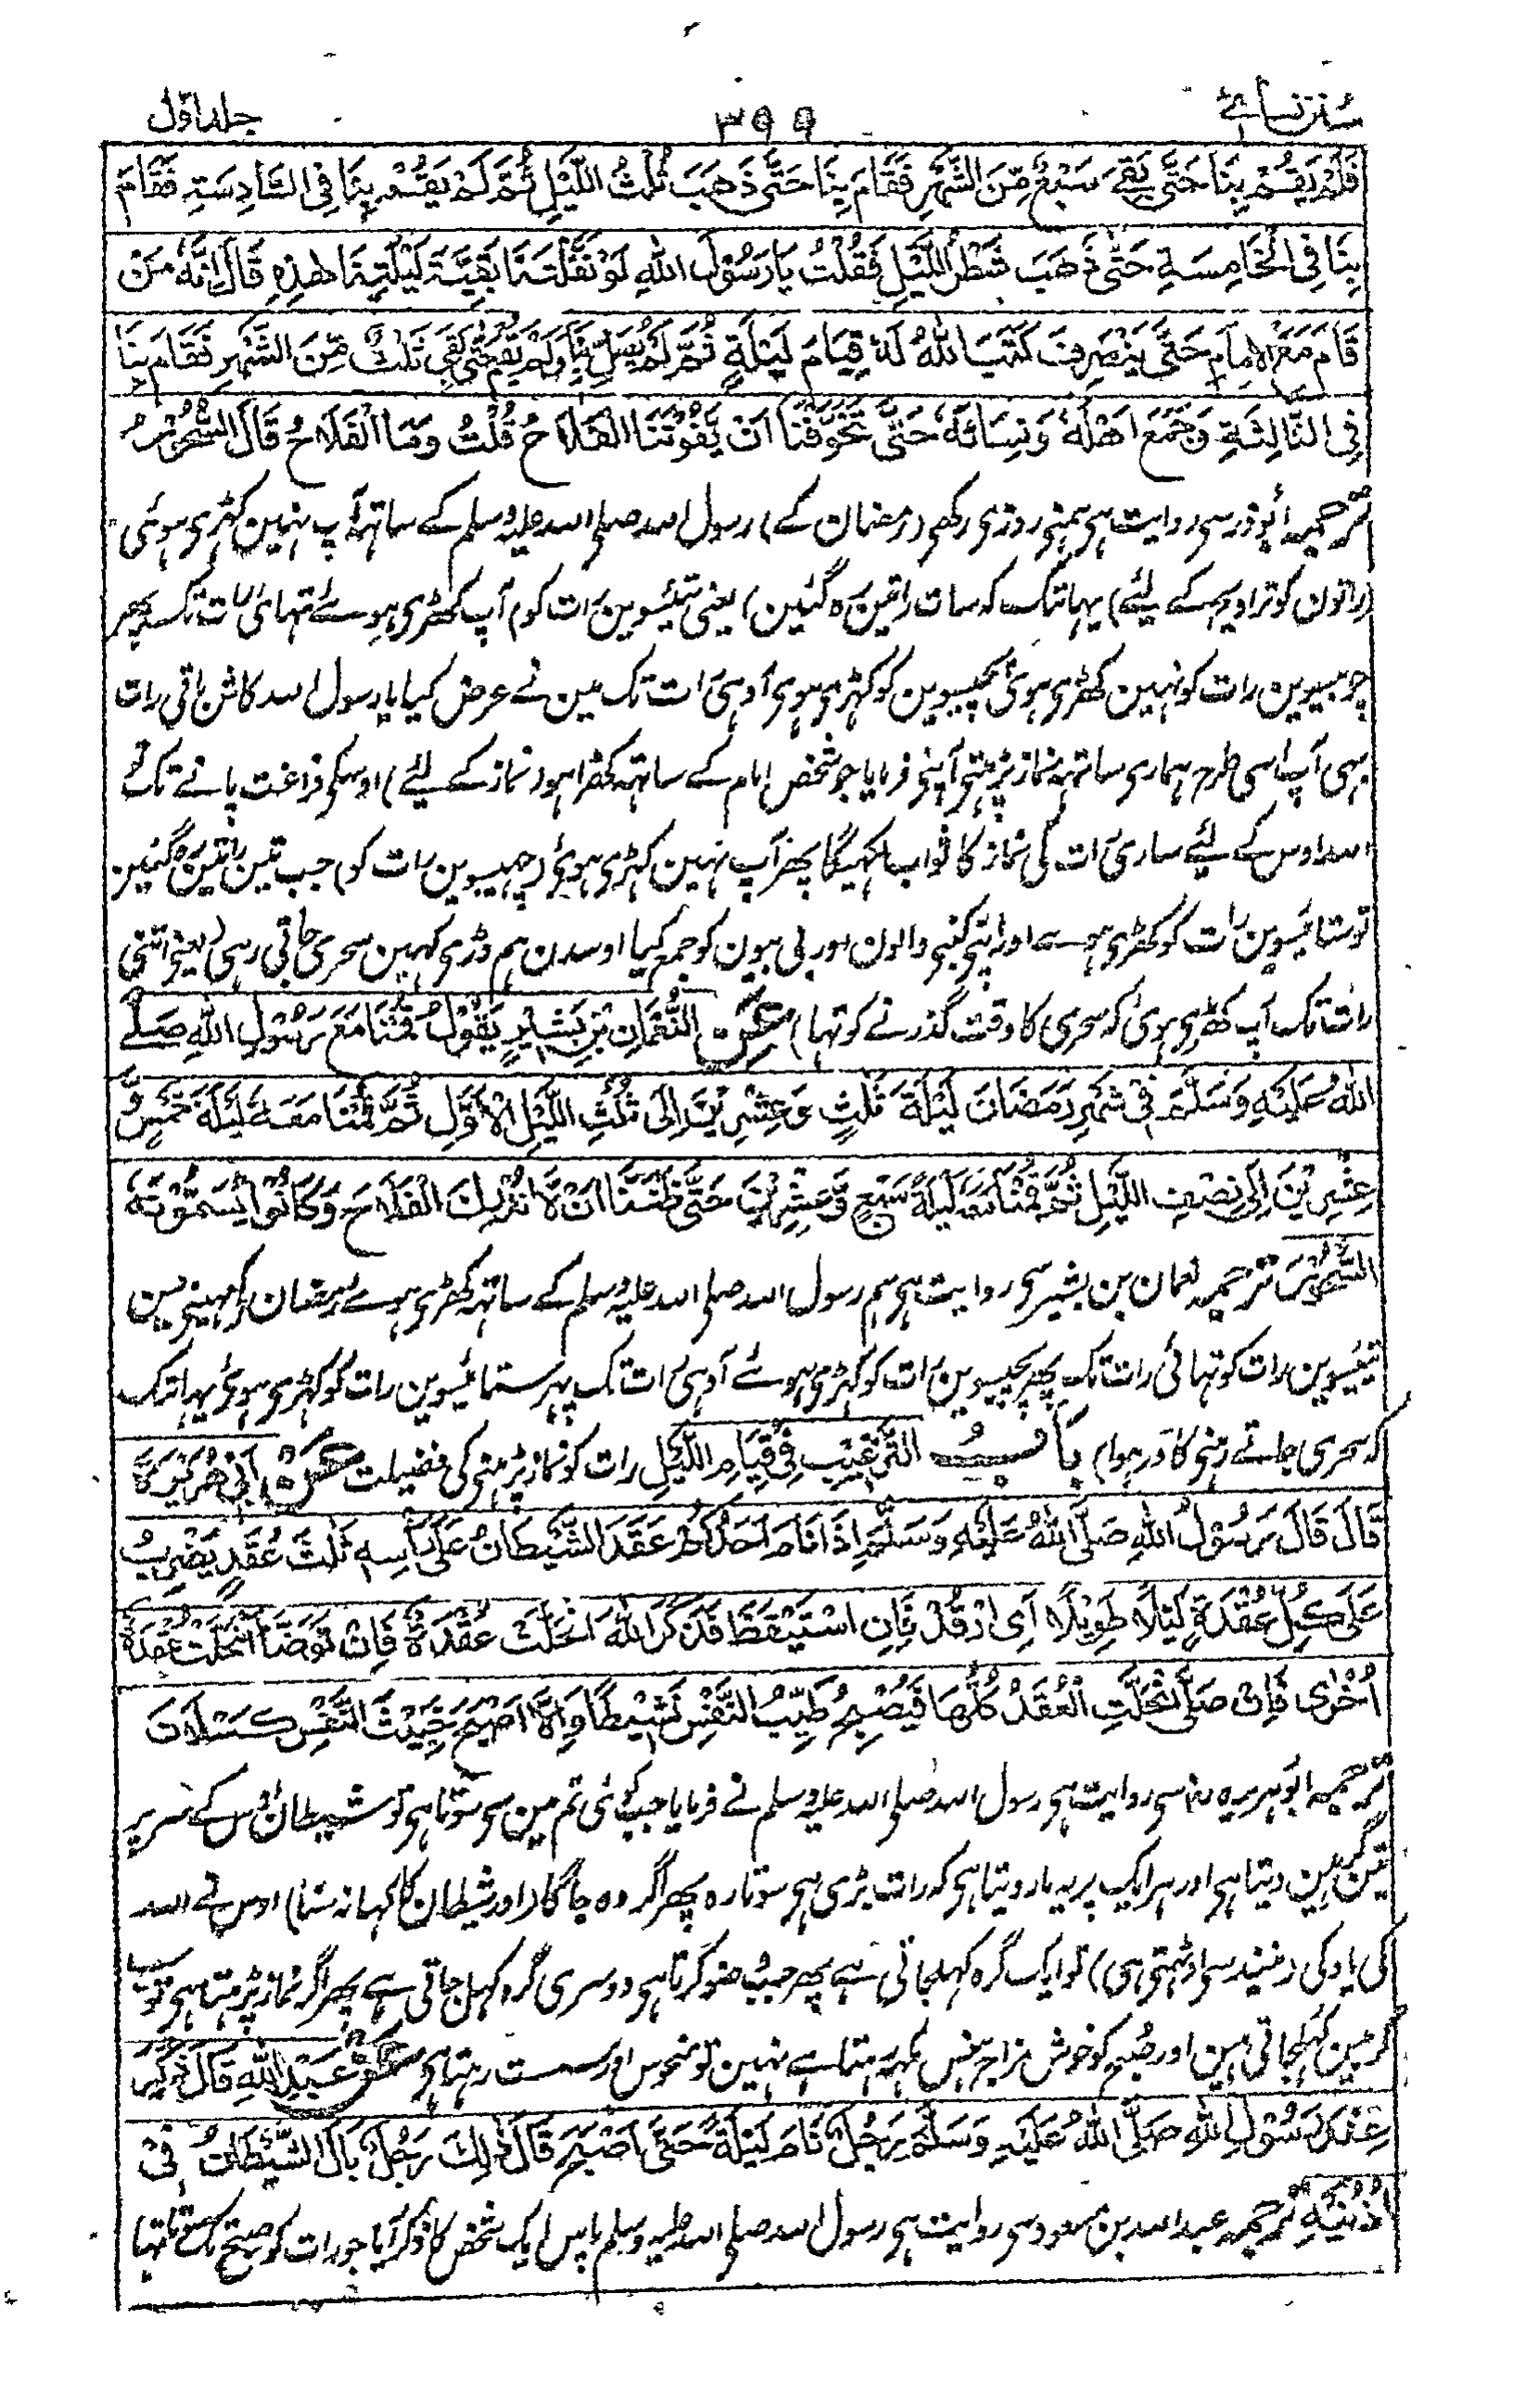 سنن نسائی ٣٩٩ جلد اول
فَلَمْ يَقُمْ بِنَا حَتَّى بَقِيَ سَبْعٌ مِّنَ الشَّهْرِ فَقَامَ بِنَا حَتَّى ذَهَبَ ثُلُثُ اللَّيْلِ ثُمَّ لَمْ يَقُمْ بِنَا فِي السَّادِسَةِ فَقَامَ
بِنَا فِي الْخَامِسَةِ حَتَّى ذَهَبَ شَطْرُ اللَّيْلِ فَقُلْتُ يَا رَسُوْلَ اللهِ لَوْ نَفَّلْتَنَا بَقِيَّةَ لَيْلَتِنَا هٰذِهِ قَالَ اِنَّهٗ مَنْ
قَامَ مَعَ الْاِمَامِ حَتَّى يَنْصَرِفَ كَتَبَ اللهُ لَهٗ قِيَامَ لَيْلَةٍ ثُمَّ لَمْ يُصَلِّ بِنَا وَلَمْ يَقُمْ حَتّٰى بَقِيَ ثَلٰثٌ مِّنَ الشَّهْرِ فَقَامَ بِنَا
فِي الثَّالِثَةِ وَجَمَعَ اَهْلَهٗ وَنِسَائَهٗ حَتَّى تَخَوَّفْنَا اَنْ يَّفُوْتَنَا الْفَلَاحُ قُلْتُ وَمَا الْفَلَاحُ قَالَ السُّحُوْرُ
ترجمہ ابوذر سی روایت ہی ہمنی روزی رکھی (رمضان کے) رسول اللہ صلی اللہ علیہ وسلم کے ساتہہ آپ نہین کہڑی ہوئی
(راتون کو تراویح کے لیئے) یہانتک کہ سات راتین رہ گئین) یعنی تیئسوین رات کو) آپ کھڑی ہوئے تہائی رات تک پھر
چوبیسوین رات کو نہین کھڑی ہوئی پچیسوین کو کہڑی ہوی آدہی رات تک مین نے عرض کیا یا رسول اللہ کاش باقی رات
بہی آپ اسی طرح ہماری ساتہہ نماز پڑہتی آپنی فرمایا جو شخص امام کے ساتہہ کھڑا ہو (نماز کے لیئے) اوسکی فراغت پانے تک تو
اللہ اوس کے لیئے ساری رات کی نماز کا ثواب لکہیگا پھر آپ نہین کہڑی ہوئی (چہبیسوین رات کو) جب تین راتین رہ گئین
تو ستائیسوین رات کو کھڑی ہوے اور اپنی کنبی والون اور بی بیون کو جمع کیا اوسدن ہم ڈری کہین سحری جاتی رہی (یعنی اتنی
رات تک آپ کھڑی ہوئی کہ سحری کا وقت گذرنے کو تہا) عَنِ النُّعْمَانِ بْنِ بَشِيْرٍ يَقُوْلُ قُمْنَا مَعَ رَسُوْلِ اللهِ صَلَّى
اللهُ عَلَيْهِ وَسَلَّمَ فِيْ شَهْرِ رَمَضَانَ لَيْلَةَ ثَلٰثٍ وَعِشْرِيْنَ اِلٰى ثُلُثِ اللَّيْلِ الْاَوَّلِ ثُمَّ قُمْنَا مَعَهٗ لَيْلَةَ خَمْسٍ وَّ
عِشْرِيْنَ اِلٰى نِصْفِ اللَّيْلِ ثُمَّ قُمْنَا مَعَهٗ لَيْلَةَ سَبْعٍ وَّعِشْرِيْنَ حَتّٰى ظَنَنَّا اَنْ لَّا نُدْرِكَ الْفَلَاحَ وَكَانُوْا يُسَمُّوْنَهُ
السُّحُوْرَ ترجمہ نعمان بن بشیر سی روایت ہی ہم رسول اللہ صلی اللہ علیہ وسلم کے ساتہہ کھڑی ہوے رمضان کی مہینی مین
تیئیسوین رات کو تہائی رات تک پھر پچیسوین رات کو کہڑی ہوئے آدہی رات تک پہر ستائیسوین رات کو کہڑی ہوئی یہانتک
کہ سحری جاتے رہنی کا ڈر ہوا) بَابُ التَّرْغِيْبِ فِيْ قِيَامِ اللَّيْلِ رات کو نماز پڑہنی کی فضیلت عَنْ اَبِيْ هُرَيْرَةَ
قَالَ قَالَ رَسُوْلُ اللهِ صَلَّى اللهُ عَلَيْهِ وَسَلَّمَ اِذَا نَامَ اَحَدُكُمْ عَقَدَ الشَّيْطَانُ عَلٰى رَأْسِهٖ ثَلٰثَ عُقَدٍ يَضْرِبُ
عَلٰى كُلِّ عُقْدَةٍ لَيْلًا طَوِيْلًا اَيِ ارْقُدْ فَاِنِ اسْتَيْقَظَ فَذَكَرَ اللهَ انْحَلَّتْ عُقْدَةٌ فَاِنْ تَوَضَّأَ انْحَلَّتْ عُقْدَةٌ
اُخْرٰى فَاِنْ صَلّٰى انْحَلَّتِ الْعُقَدُ كُلُّهَا فَيُصْبِحُ طَيِّبَ النَّفْسِ نَشِيْطًا وَاِلَّا اَصْبَحَ خَبِيْثَ النَّفْسِ كَسْلَانَ
ترجمہ ابو ہریرہ رض سی روایت ہی رسول اللہ صلی اللہ علیہ وسلم نے فرمایا جب کوئی تم مین سی سوتا ہی تو شیطان اوس کے سر پر
تین گرہین دیتا ہی اور ہر ایک پر یہ مار دیتا ہی کہ رات بڑی ہی سوتا رہ پھر اگر وہ جاگا (اور شیطان کا کہا نہ سنا) اوس نے اللہ
کی یاد کی (نیند سی اوٹہتی ہی) تو ایک گرہ کہلجاتی ہے پھر جب وضو کرتا ہی دوسری گرہ کہل جاتی ہے پھر اگر نماز پڑہتا ہی تو سب
گرہین کہلجاتی ہین اور صبح کو خوش مزاج ہنس مکہہ اوٹہتا ہے نہین تو منحوس اور سست رہتا ہی عَنْ عَبْدِ اللهِ قَالَ ذُكِرَ
عِنْدَ رَسُوْلِ اللهِ صَلَّى اللهُ عَلَيْهِ وَسَلَّمَ رَجُلٌ نَامَ لَيْلَةً حَتّٰى اَصْبَحَ قَالَ ذٰلِكَ رَجُلٌ بَالَ الشَّيْطَانُ فِيْ
اُذُنَيْهِ ترجمہ عبد اللہ بن مسعود سی روایت ہی رسول اللہ صلی اللہ علیہ وسلم پاس ایک شخص کا ذکر آیا جو رات کو صبح تک سوتا تہا